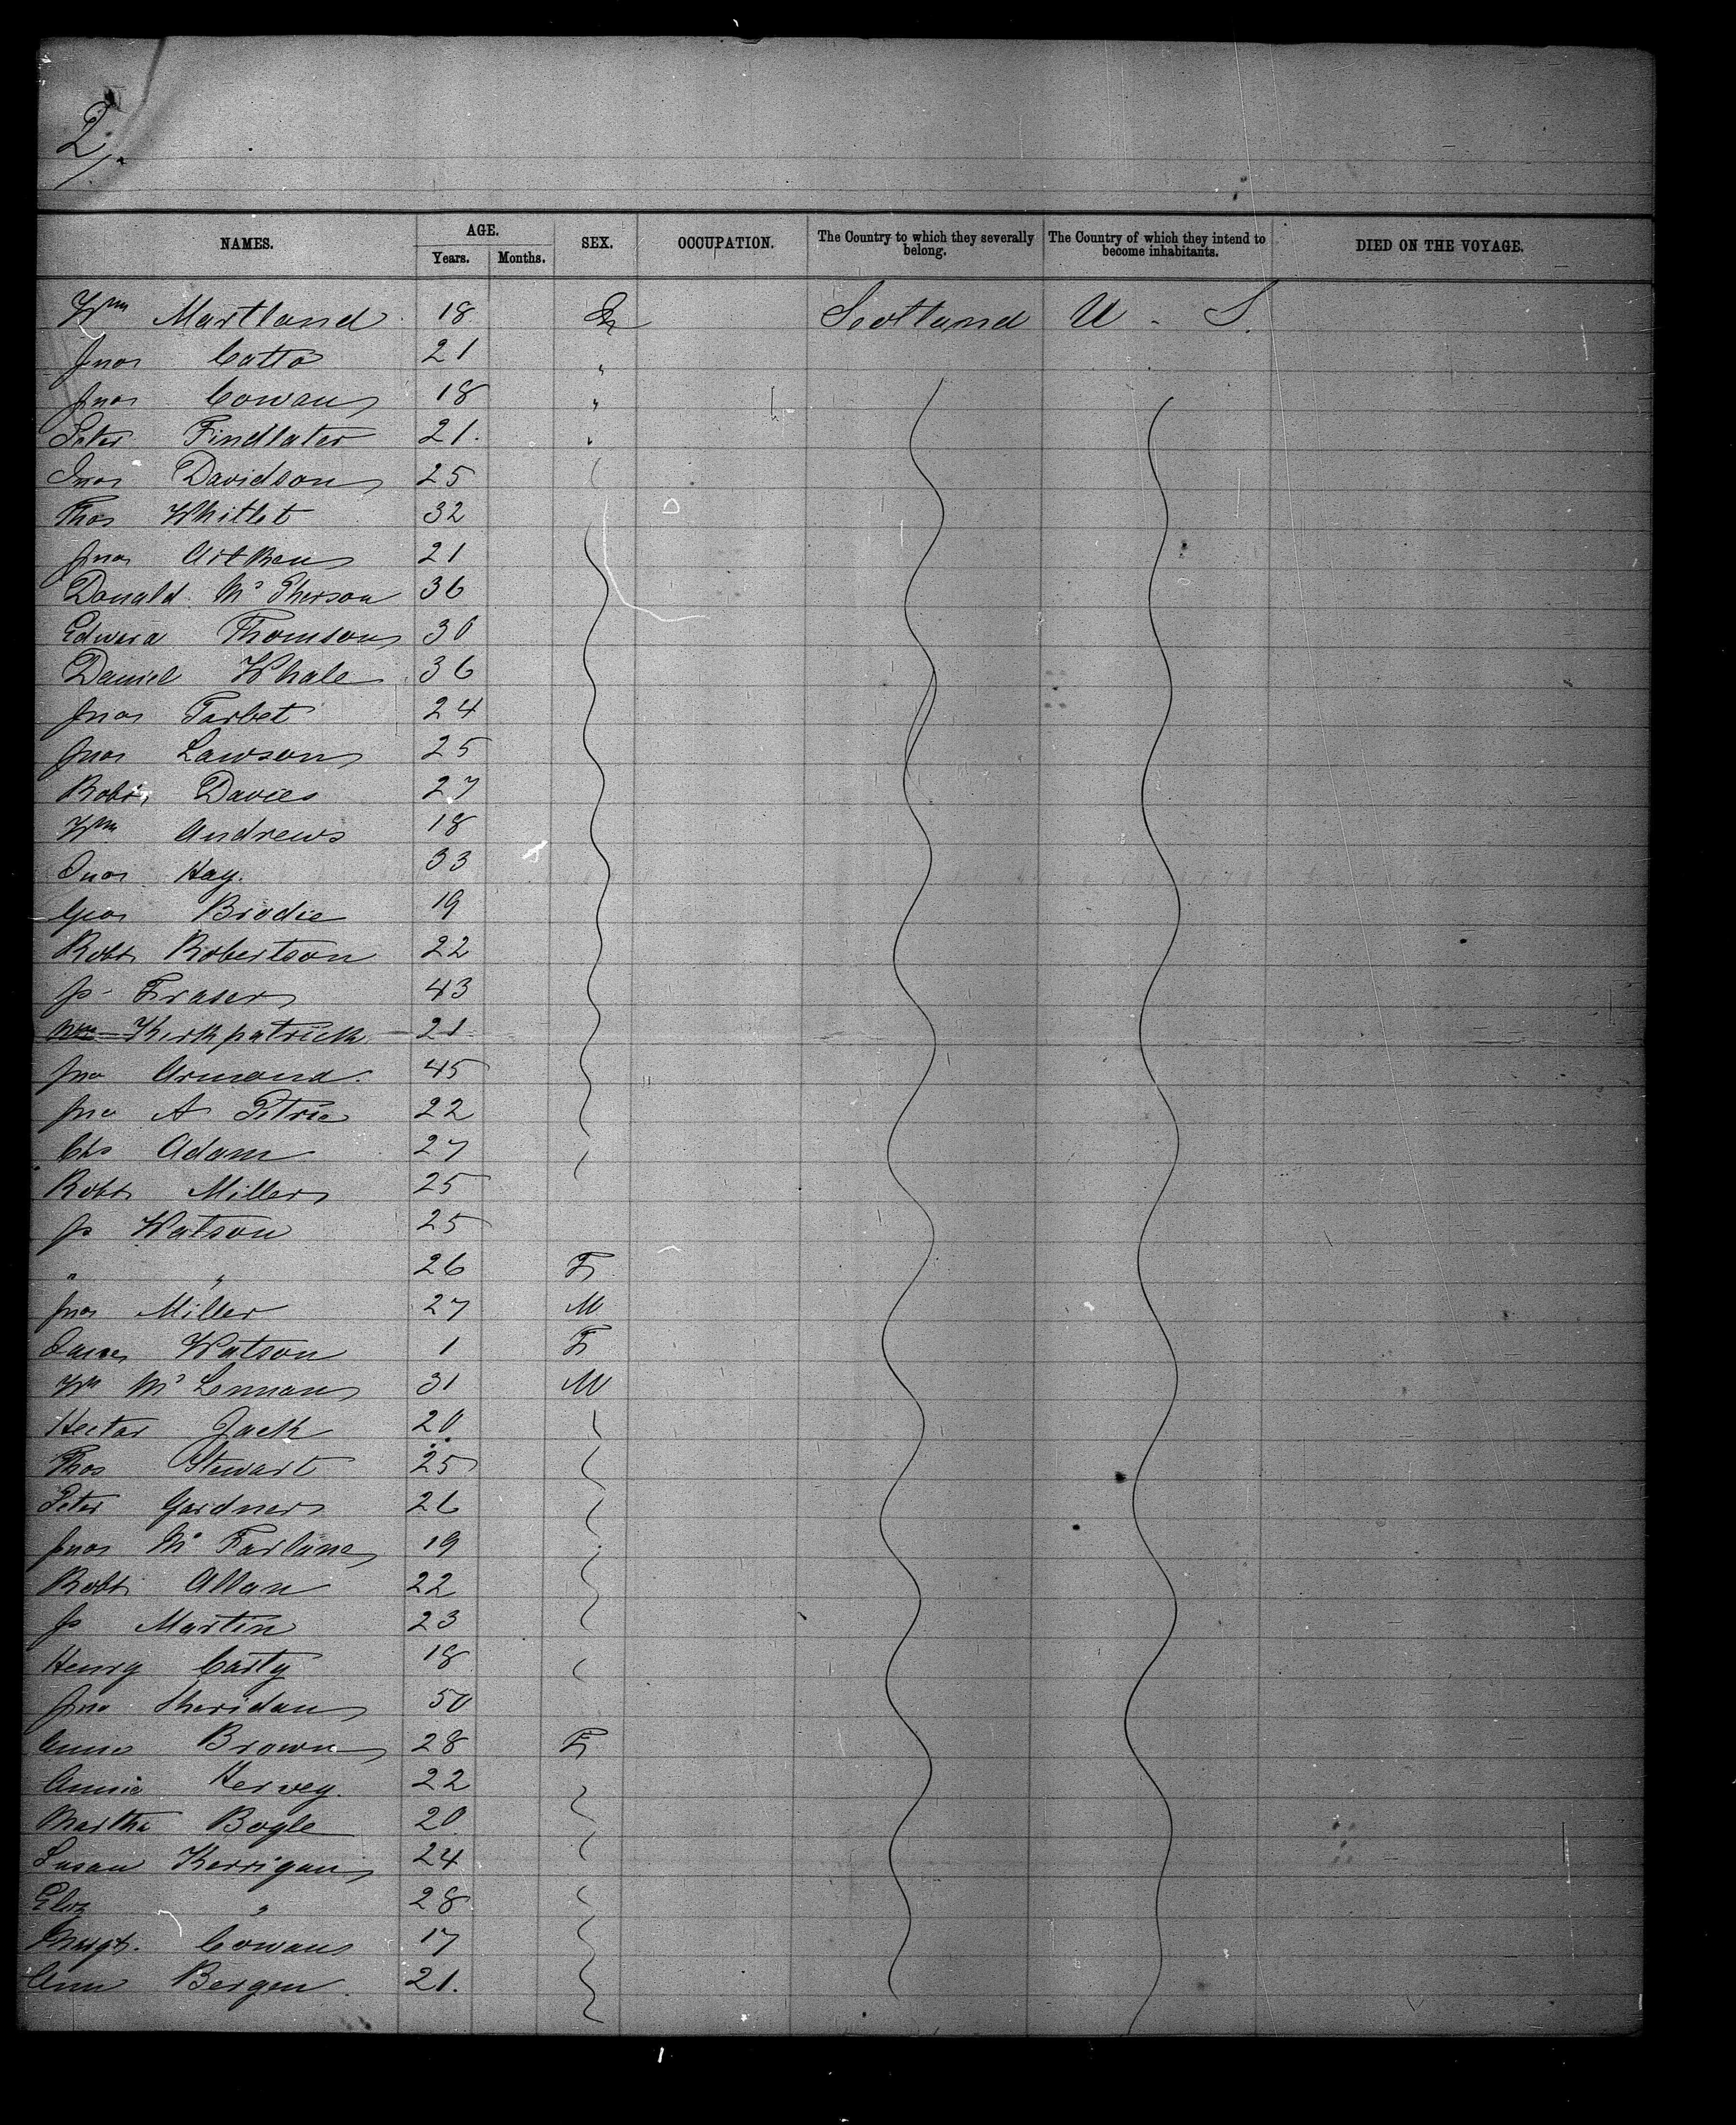 2.
NAMES. AGE. SEX. OCCUPATION. The Country to which they severally belong. The Country of which they intend to become inhabitants. DIED ON THE VOYAGE.
Years. Months.
Wm Martland 18 Scotland U. S.
Jno Catto 21 "
Jno Cowan 18 "
Peter Findlater 21. "
Jno Davidson 25
Thos Whitlet 32
Jno Aitken 21
Donald Mc Pherson 36
Edward Thomson 30
Daniel Whale 36
Jno Tarbet 24
Jno Lawson 25
Robt Davies 27
Wm Andrews 18
Jno Hay. 33
Geo Brodie 19
Robt Robertson 22
Js Fraser 43
Wm Kirkpatrick 21
Jno Armond. 45
Jno A Petrie 22
Chs Adam 27
Robt Miller 25
Js Watson 25
" " 26 F
Jno Miller 27 M
Watson 1 F
Wm Mc Lennan 31 M
Hector Jack 20
Thos Stewart 25
Peter Gardner 26
Jno Mc Farlane 19
Robt Allan 22
Js Martin 23
Henry Carty 18
Jno Sheridan 50
Annie Brown 28 F
Annie Hervey. 22
Martha Bogle 20
Susan Kerrigan 24
Eliz " 28
Margt. Cowans 17
Ann Bergen. 21.